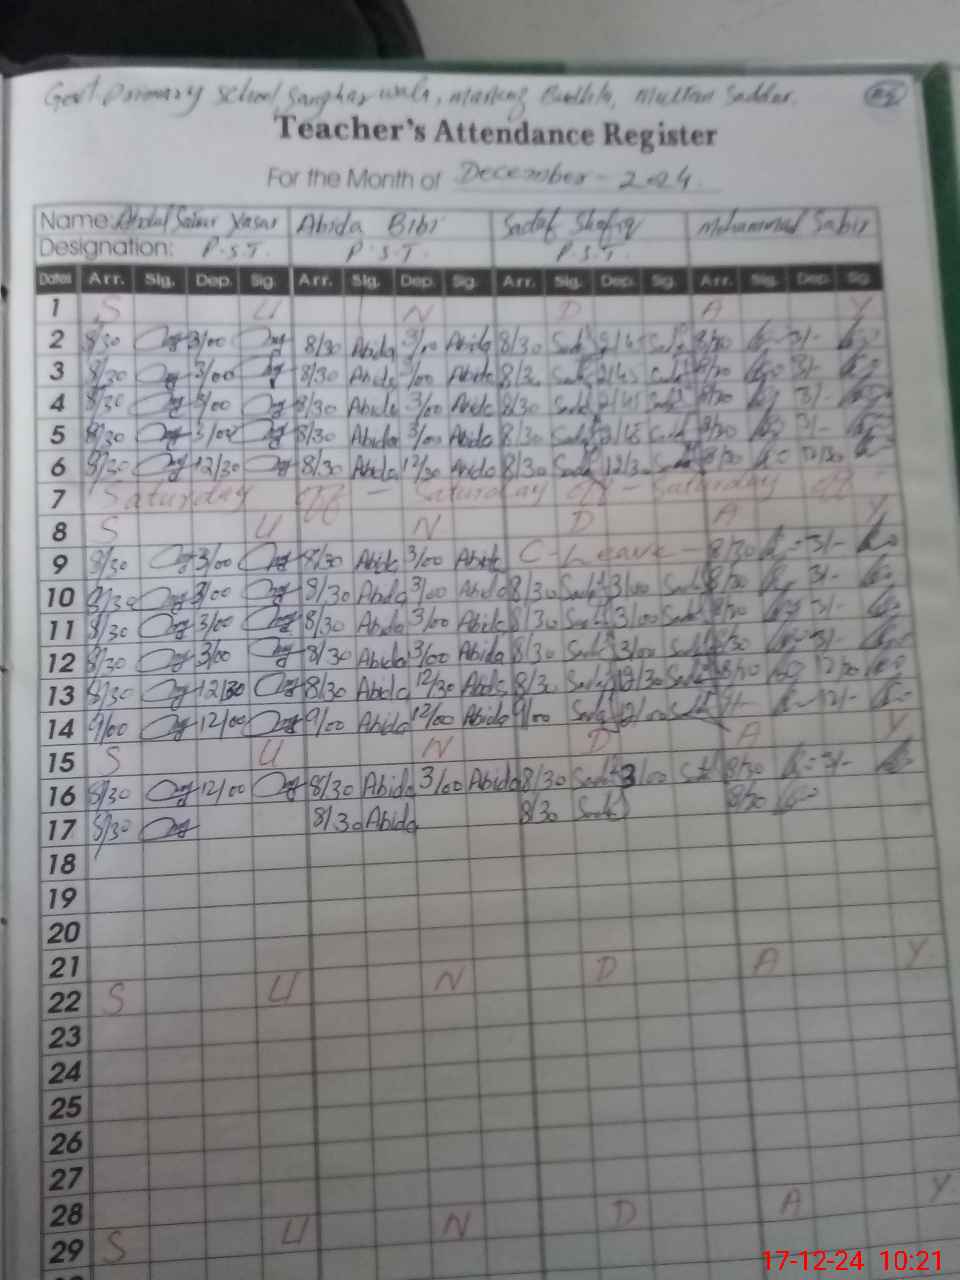 Govt. Primary School Sangharwala, Markaz Multan Saddar.
Teacher's Attendance Register
For the Month of December - 2024.
Name: Abdul Yasar Abida Bibi Sadaf Shafiq Mohammad Sabir
Designation: P.S.T. P.S.T. P.S.T.
Dates Arr. Sig. Dep. Sig. Arr. Sig. Dep. Sig. Arr. Sig. Dep. Sig. Arr. Sig. Dep. Sig.
1 S U N D A Y
2 8/30 3/00 8/30 Abida 3/00 Abida 8/30 2/45 8/30 3/-
3 8/30 3/00 8/30 Abida 3/00 Abida 8/30 2/45 8/30 3/-
4 8/30 3/00 8/30 Abida 3/00 Abida 8/30 2/45 8/30 3/-
5 8/30 3/00 8/30 Abida 3/00 Abida 8/30 2/45 8/30 3/-
6 8/30 12/30 8/30 Abida 12/30 Abida 8/30 12/30 8/30 12/30
7 Saturday off - Saturday off - Saturday off
8 S U N D A Y
9 8/30 3/00 8/30 Abida 3/00 Abida C-Leave - 8/30 3/-
10 8/30 3/00 8/30 Abida 3/00 Abida 8/30 3/00 8/30 3/-
11 8/30 3/00 8/30 Abida 3/00 Abida 8/30 3/00 8/30 3/-
12 8/30 3/00 8/30 Abida 3/00 Abida 8/30 3/00 8/30 3/-
13 8/30 12/30 8/30 Abida 12/30 Abida 8/30 12/30 8/30 12/30
14 9/00 12/00 9/00 Abida 12/00 Abida 9/00 12/00 9/- 12/-
15 S U N D A Y
16 8/30 12/00 8/30 Abida 3/00 Abida 8/30 3/00 8/30 3/-
17 8/30 8/30 Abida 8/30 8/30
18
19
20
21
22 S U N D A Y
23
24
25
26
27
28
29 S U N D A Y
17-12-24 10:21